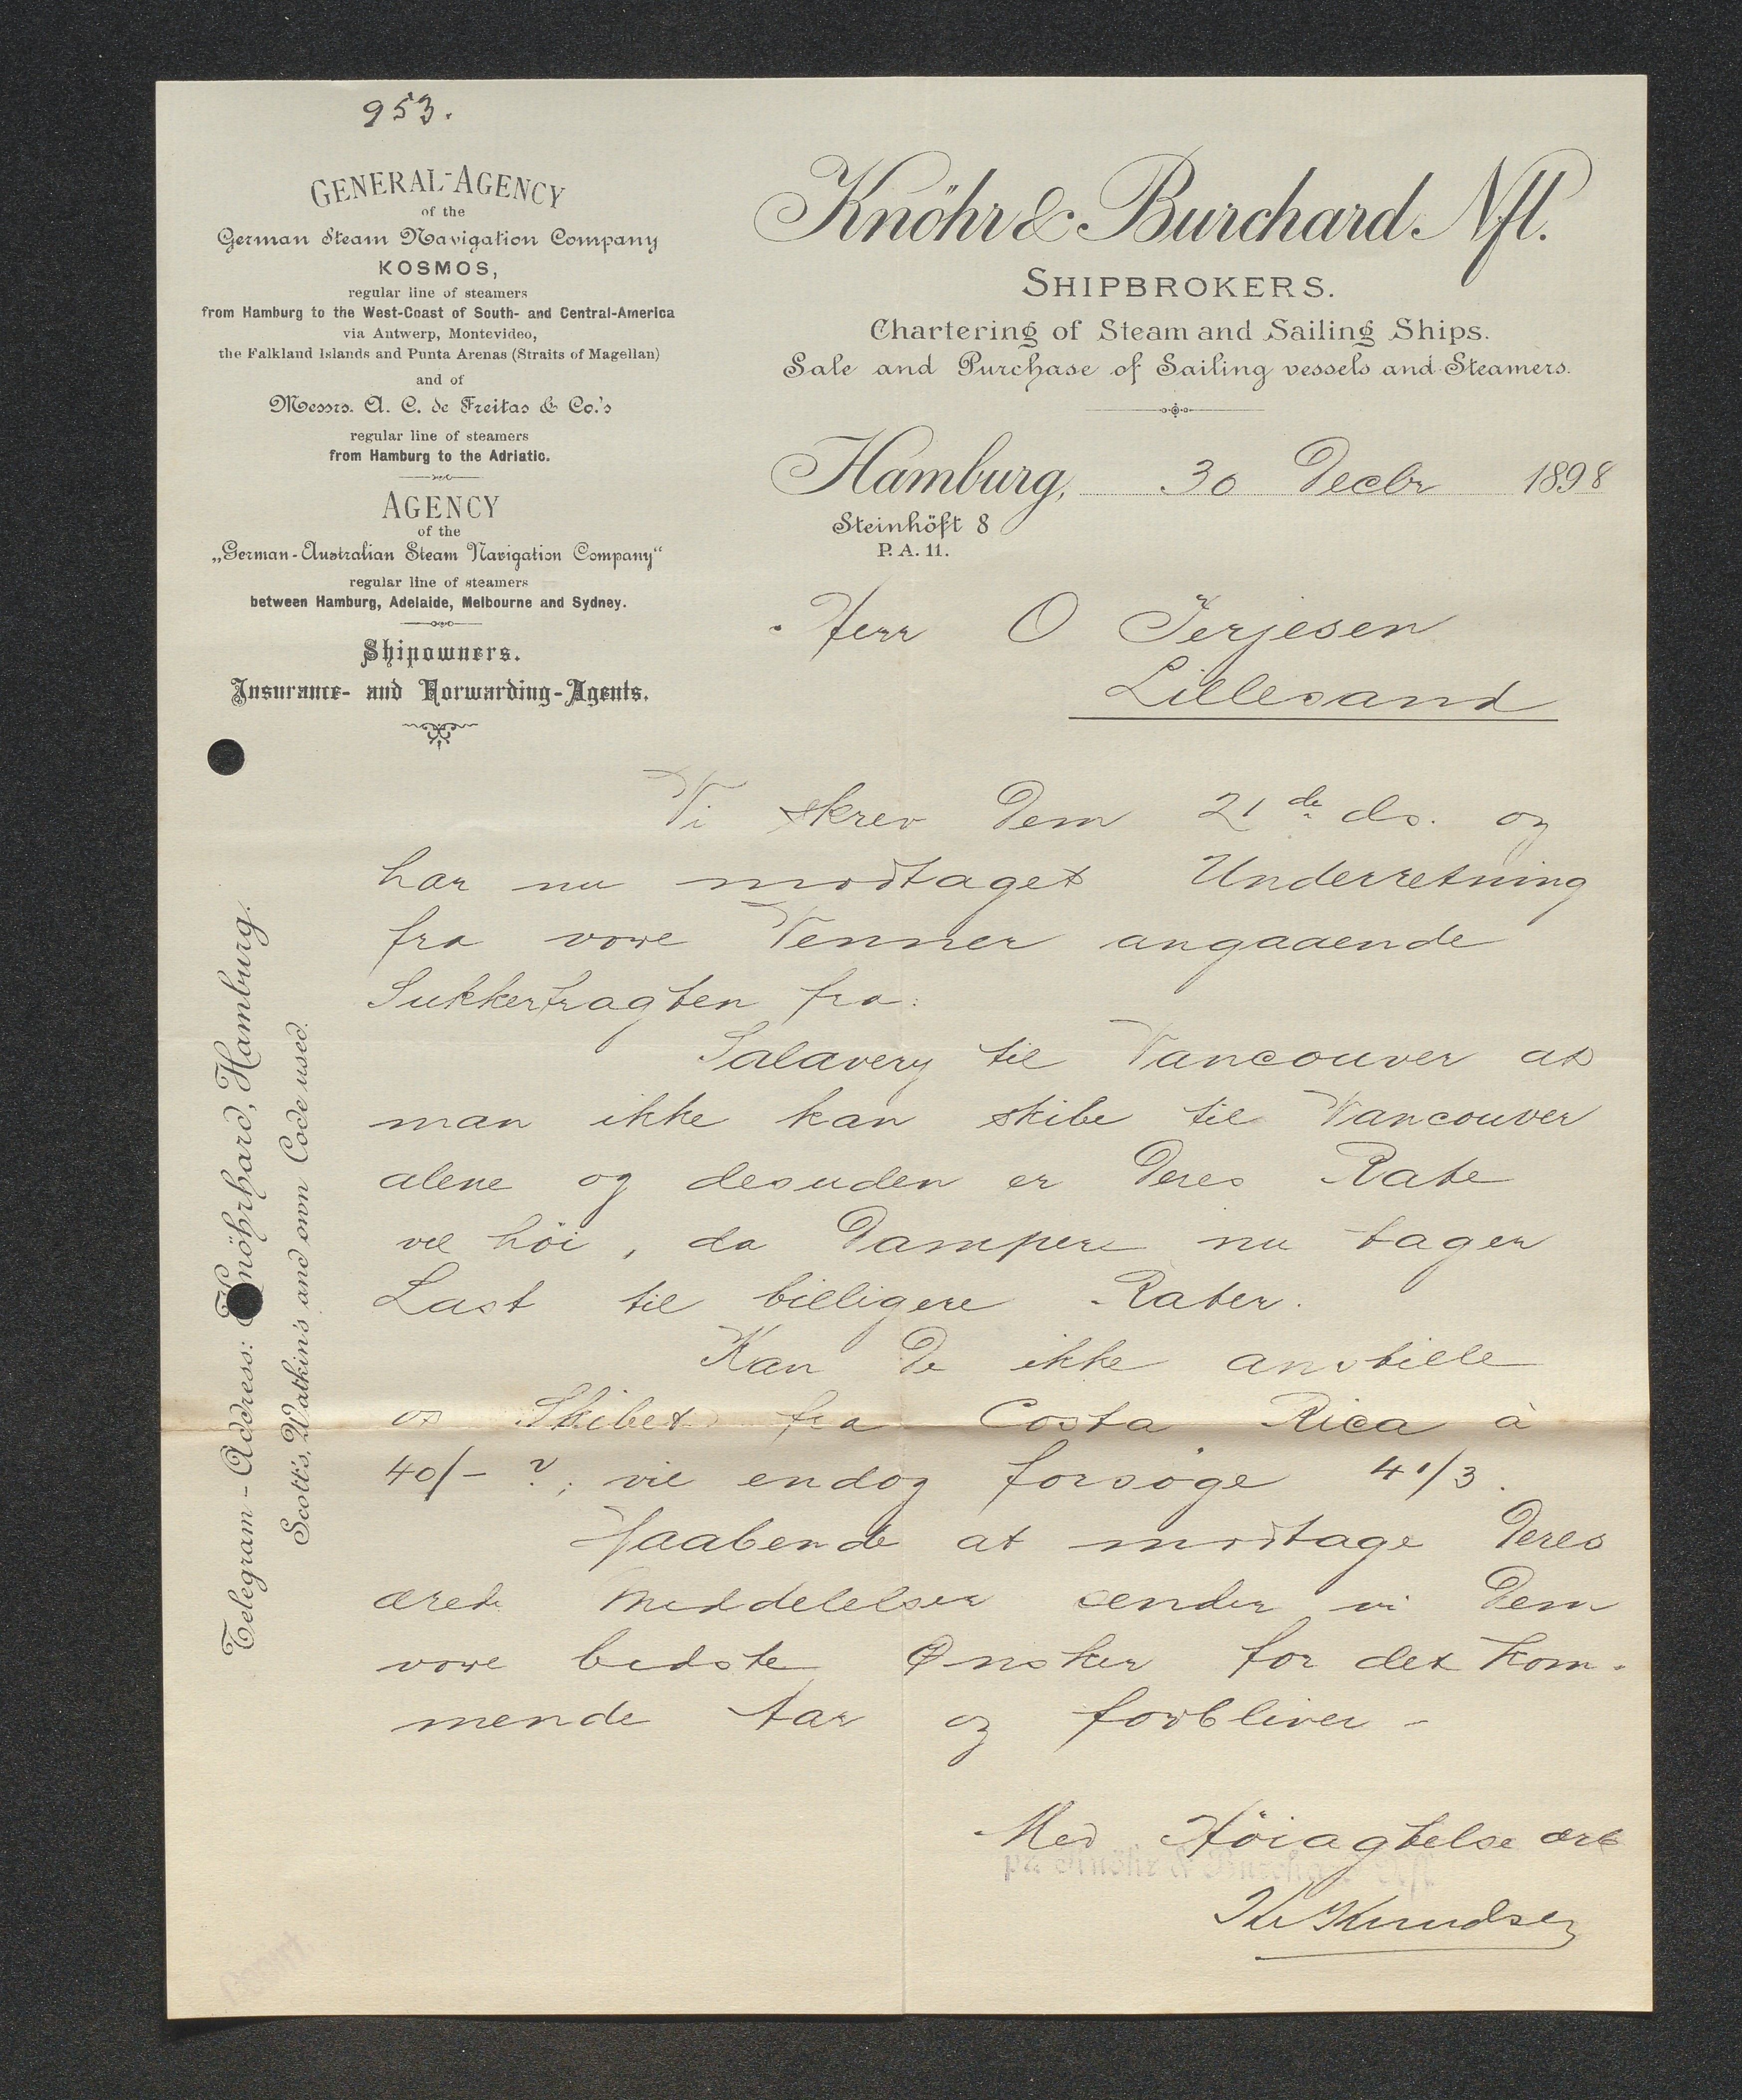 953.
GENERAL-AGENCY
of the
German Steam Navigation Company
KOSMOS,
regular line of steamers
from Hamburg to the West-Coast of South- and Central-America
via Antwerp, Montevideo,
the Falkland Islands and Punta Arenas (Straits of Magellan)
and of
Messrs. A. C. de Freitas & Co.'s
regular line of steamers
from Hamburg to the Adriatic.
AGENCY
of the
„German-Australian Steam Navigation Company“
regular line of steamers
between Hamburg, Adelaide, Melbourne and Sydney.
Shipowners.
Insurance- and Forwarding-Agents.
Telegram-Address: Knöhrhard, Hamburg.
Scott's, Watkin's and own Code used.
Knöhr & Burchard Nfl.
SHIPBROKERS.
Chartering of Steam and Sailing Ships.
Sale and Purchase of Sailing vessels and Steamers.
Hamburg, 30 Decbr 1898
Steinhöft 8
P. A. 11.
Herr O Terjesen
Lillesand
Vi skrev Dem 21de ds. og
har nu modtaget Underretning
fra vore Venner angaaende
Sukkerfragten fra:
Salavery til Vancouver at
man ikke kan skibe til Vancouver
alene og desuden er Deres Rate
vel höi, da Dampere nu tager
Last til billigere Rater.
Kan De ikke anstille
os Skibet fra Costa Rica à
40/- ?; vil endog forsöge 41/3.
Haabende at modtage Deres
ærede Meddelelser sender vi Dem
vore bedste Ønsker for det kom-
mende Aar og forbliver -
Med Höiagtelse ærb
pr. Knöhr & Burchard Nfl.
Knudsen